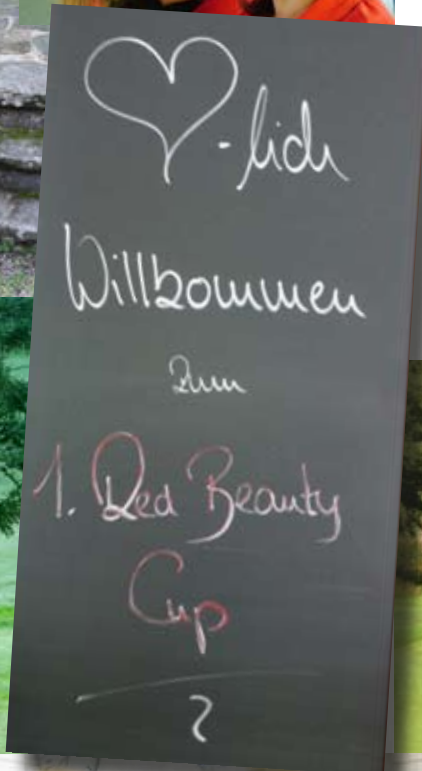 ♡-lich
Willkommen
zum
1. Red Beauty
Cup